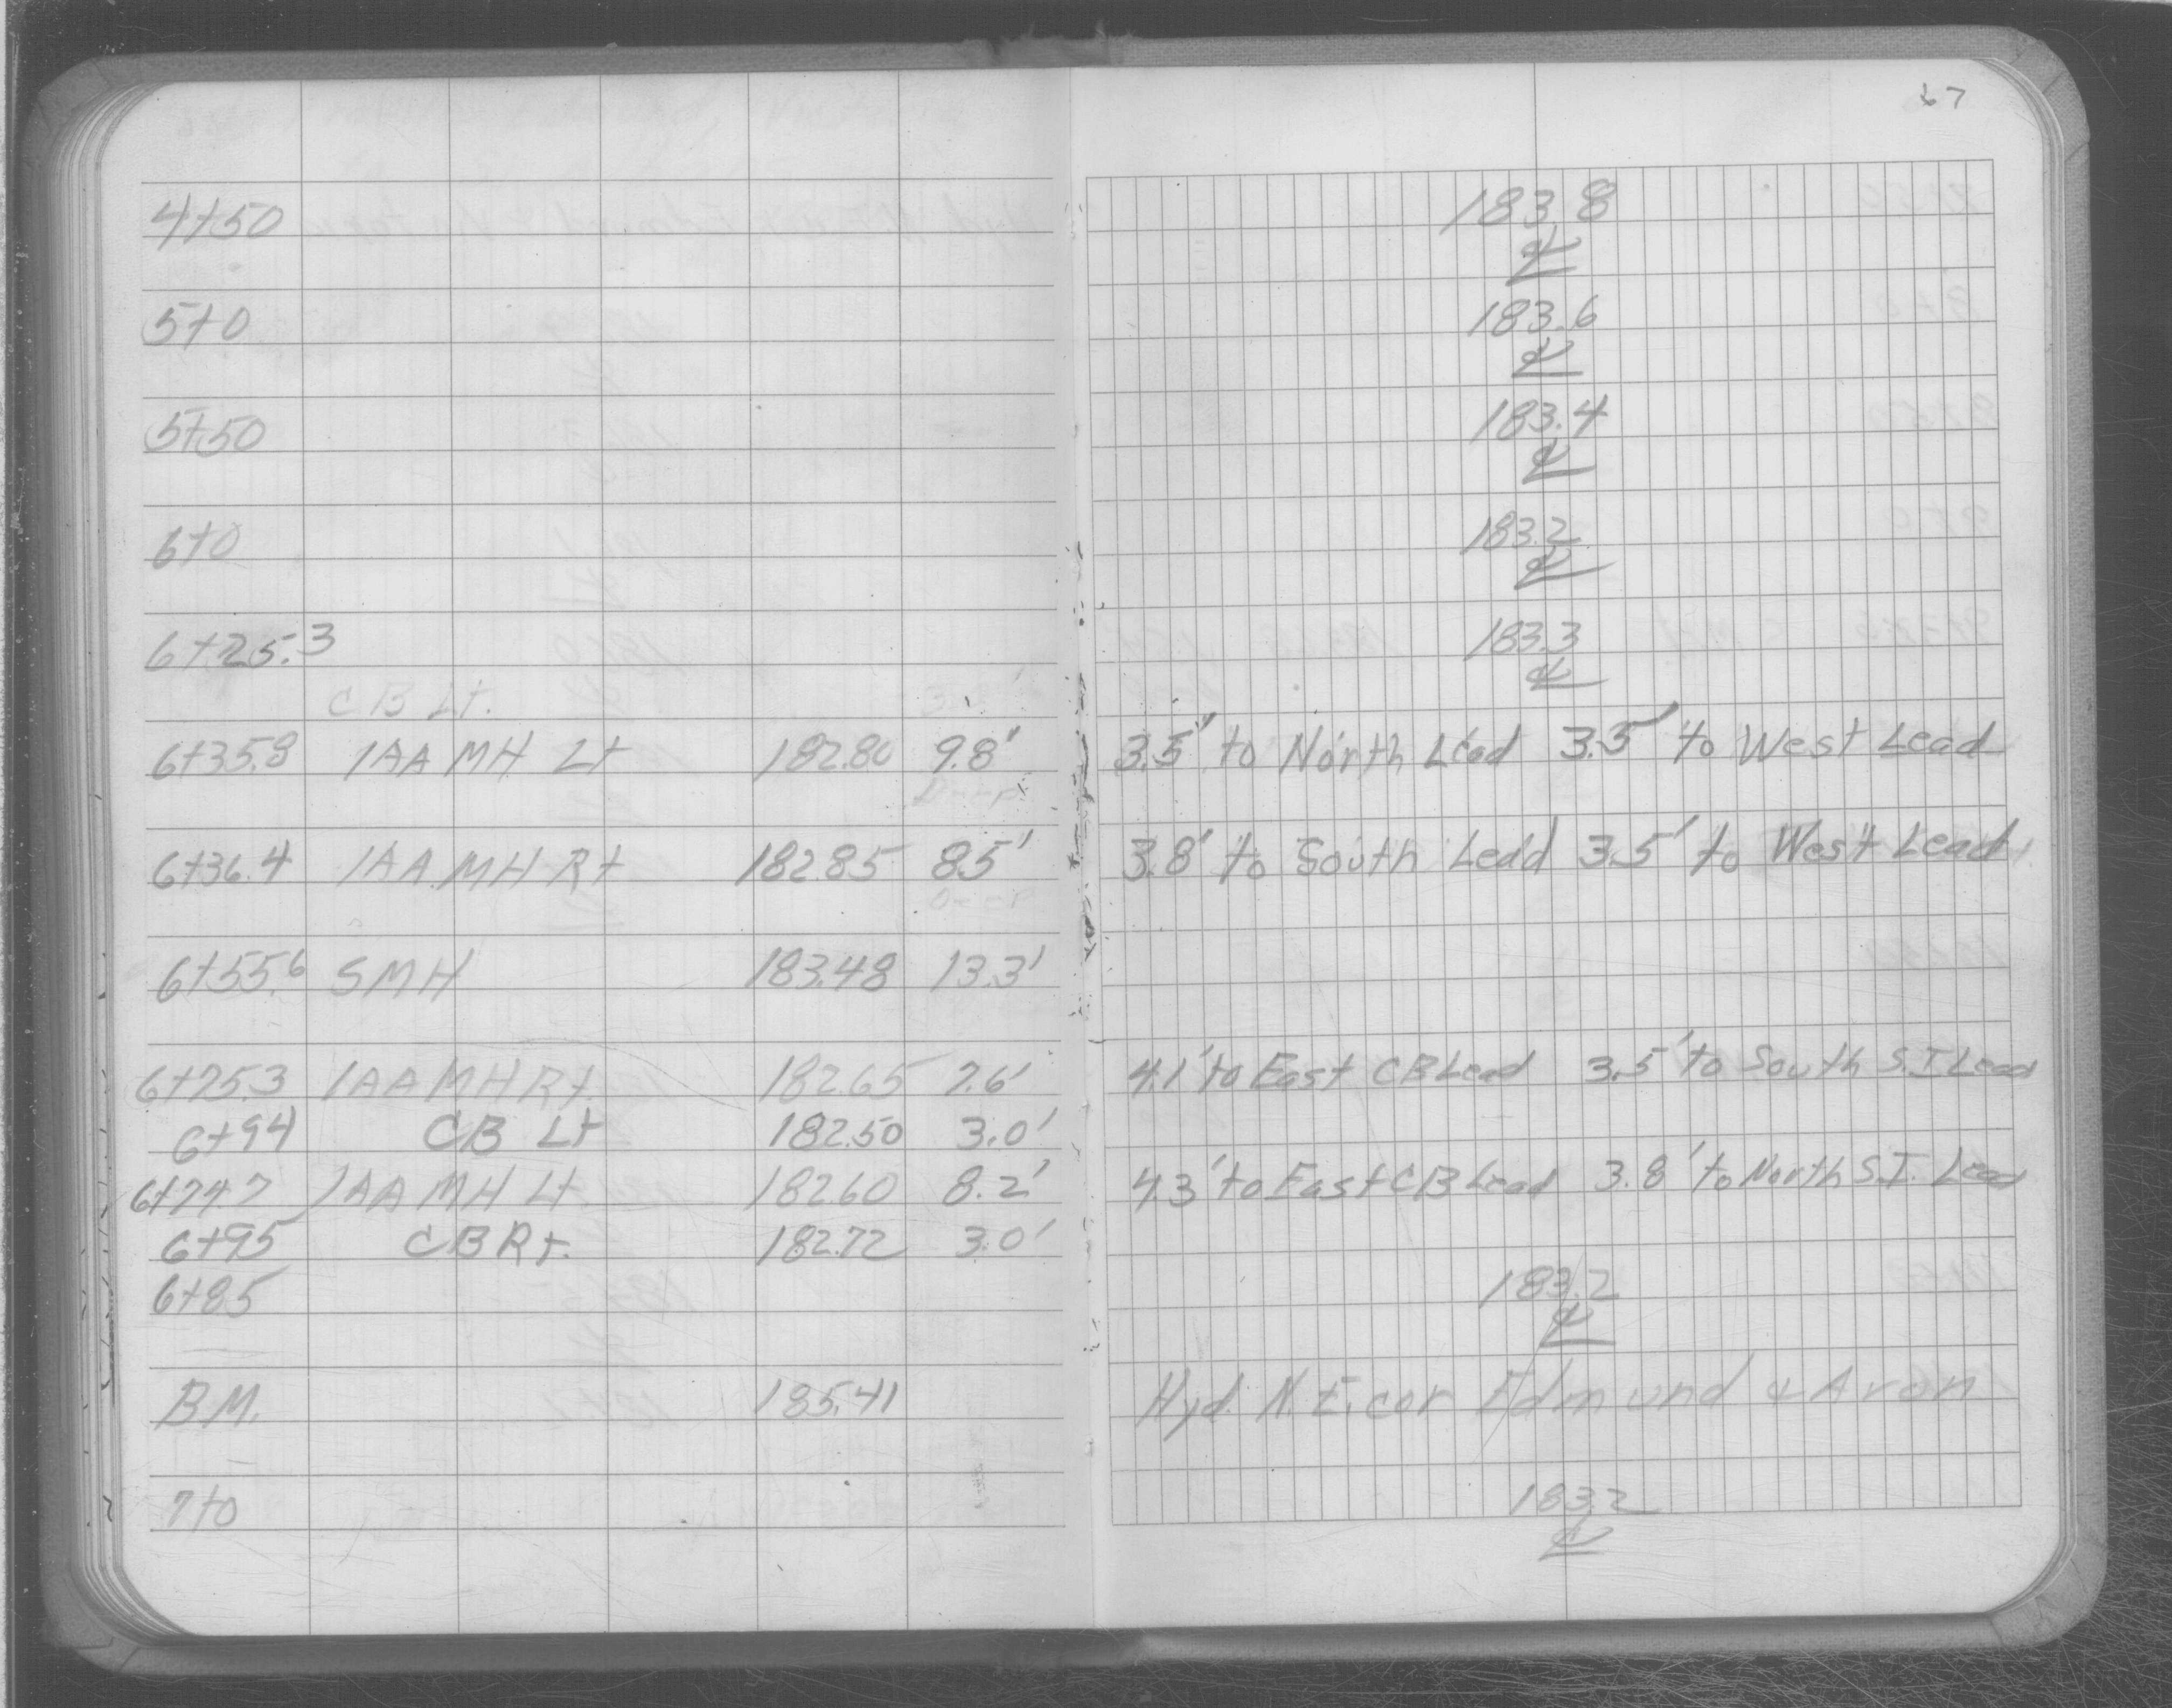 67
4+50 183.8
℄
5+0 183.6
℄
5+50 183.4
℄
6+0 183.2
℄
6+25.3 183.3
℄
CB Lt.
6+35.8 1AA MH Lt 182.80 9.8' 3.5' to North Lead 3.5' to West Lead
Deep
6+36.4 1AA MH Rt 182.85 8.5' 3.8' to South Lead 3.5' to West Lead
Deep
6+55.6 SMH 183.48 13.3'
6+75.3 1AA MH Rt. 182.65 7.6' 4.1' to East CB Lead 3.5' to South S.I Lead
6+94 CB Lt 182.50 3.0'
6+74.7 1AA MH Lt. 182.60 8.2' 4.3' to East CB Lead 3.8' to North S.I. Lead
6+95 CB Rt. 182.72 3.0'
6+85 183.2
℄
B.M. 185.41 Hyd. N.E. cor Edmund & Avon
7+0 183.2
℄